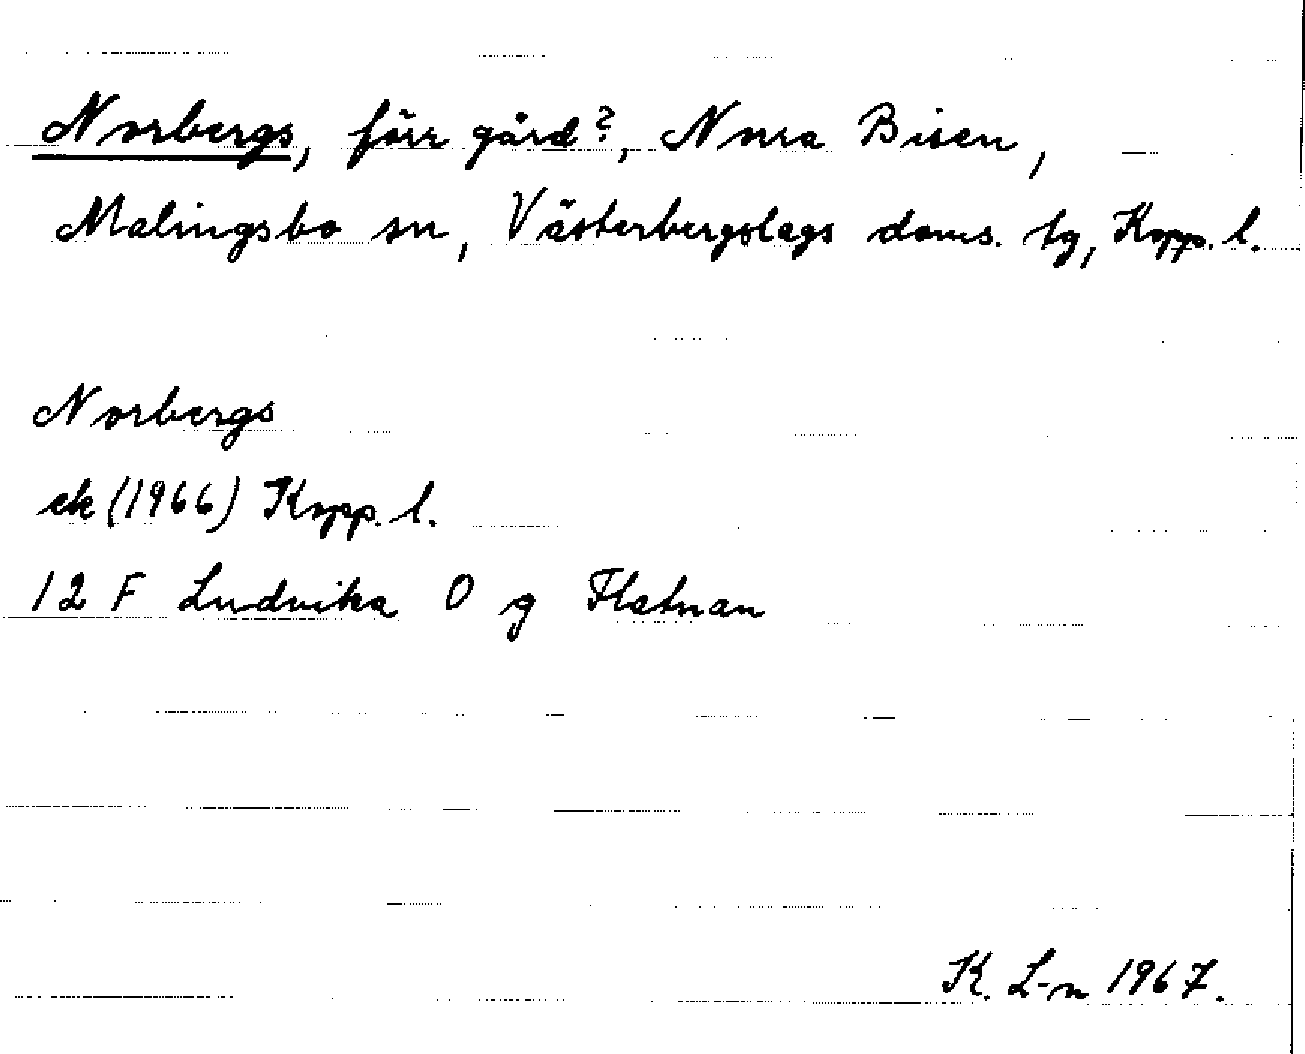 Norbergs, förr gård?, Norra Bisen,
Malingsbo sn, Västerbergslags doms. tg, Kopp. l.
Norbergs
ek (1966) Kopp. l.
12 F Ludvika O g Flatnan
K. L-n 1967.